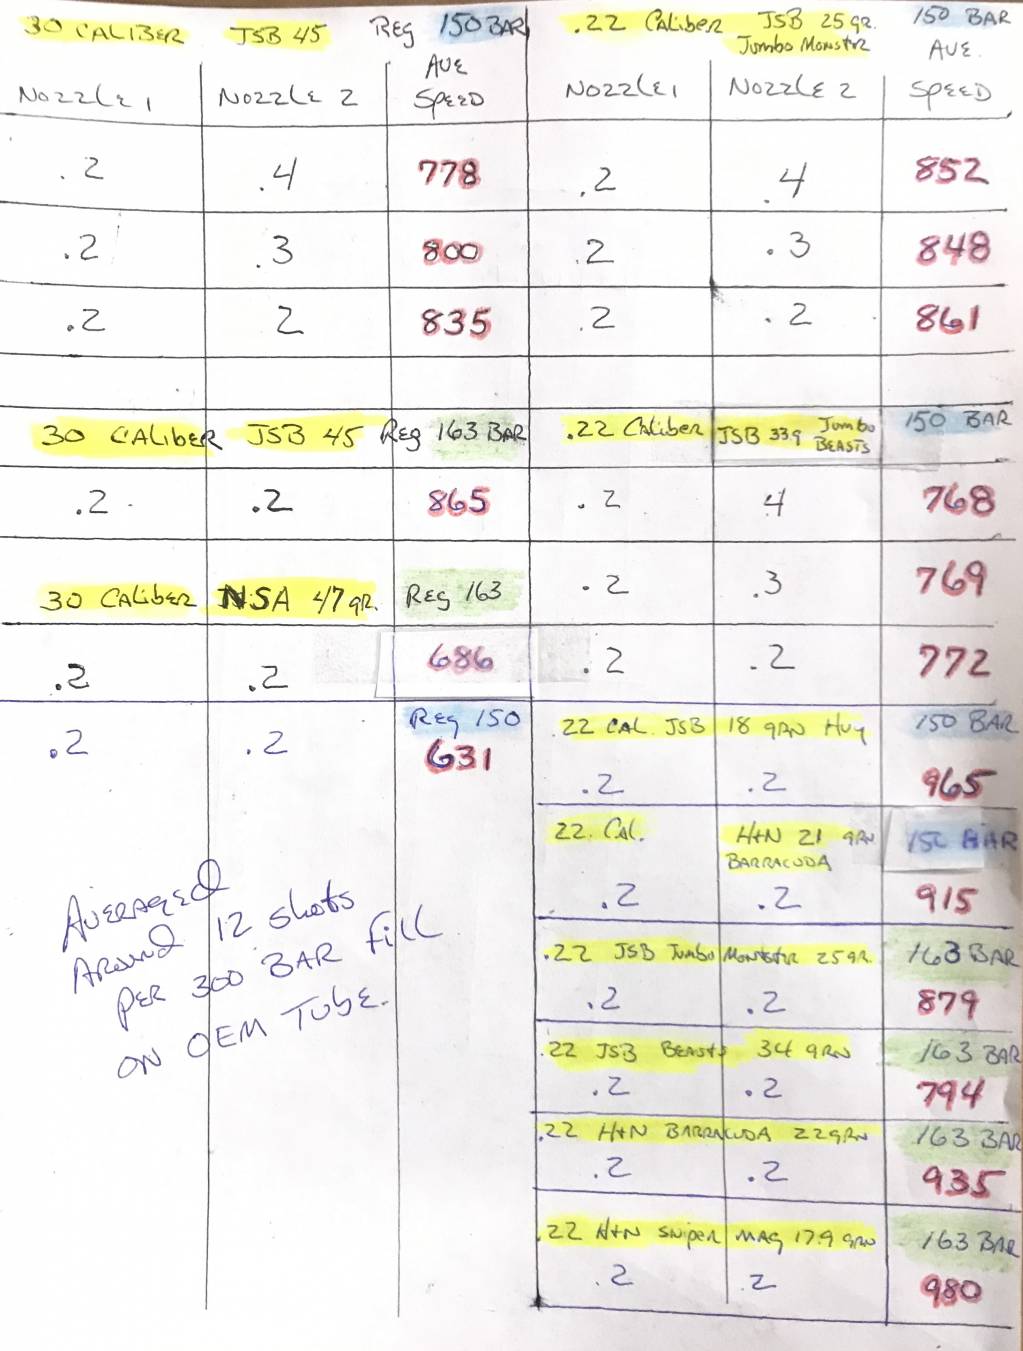 30 CALIBER JSB 45 Reg 150 BAR
NOZZLE 1 NOZZLE 2 AVE SPEED
.2 .4 778
.2 .3 800
.2 2 835
30 CALIBER JSB 45 Reg 163 BAR
.2 .2 865
30 CALIBER NSA 47 gr. Reg 163
.2 .2 686
Reg 150
.2 .2 631
AVERAGED
AROUND 12 shots
PER 300 BAR Fill
ON OEM TUBE.
.22 CALIBER JSB 25 gr. Jumbo Monstr 150 BAR
NOZZLE 1 NOZZLE 2 AVE. SPEED
.2 .4 852
.2 .3 848
.2 .2 861
.22 CALIBER JSB 33g Jumbo BEASTS 150 BAR
.2 4 768
.2 .3 769
.2 .2 772
.22 CAL. JSB 18 grn Hvy 150 BAR
.2 .2 965
22. CAL. H+N 21 grn BARRACUDA 150 BAR
.2 .2 915
.22 JSB Jumbo Monstr 25 gr. 163 BAR
.2 .2 879
.22 JSB BEASTS 34 grn 163 BAR
.2 .2 794
.22 H+N BARRACUDA 22 grn 163 BAR
.2 .2 935
.22 H+N Sniper MAG 17.9 grn 163 BAR
.2 .2 980